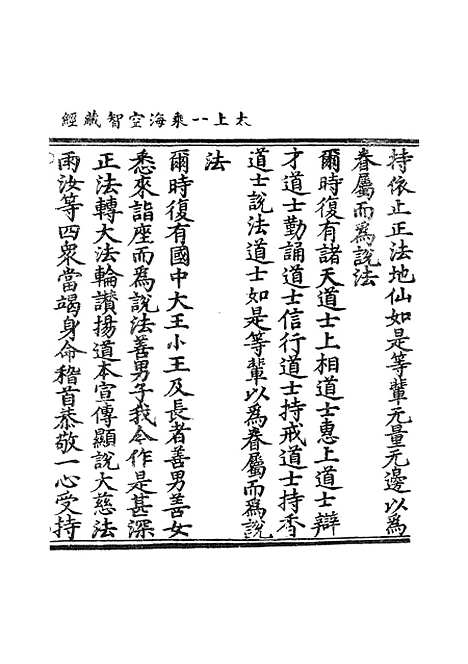 太上一乘海空智藏經
持依止正法地仙如是等輩无量无邊以為
眷屬而為說法
爾時復有諸天道士上相道士惠上道士辯
才道士勤誦道士信行道士持戒道士持香
道士說法道士如是等輩以為眷屬而為說
法
爾時復有國中大王小王及長者善男善女
悉來詣座而為說法善男子我今作是甚深
正法轉大法輪讚揚道本宣傳顯說大慈法
雨汝等四衆當竭身命稽首恭敬一心受持